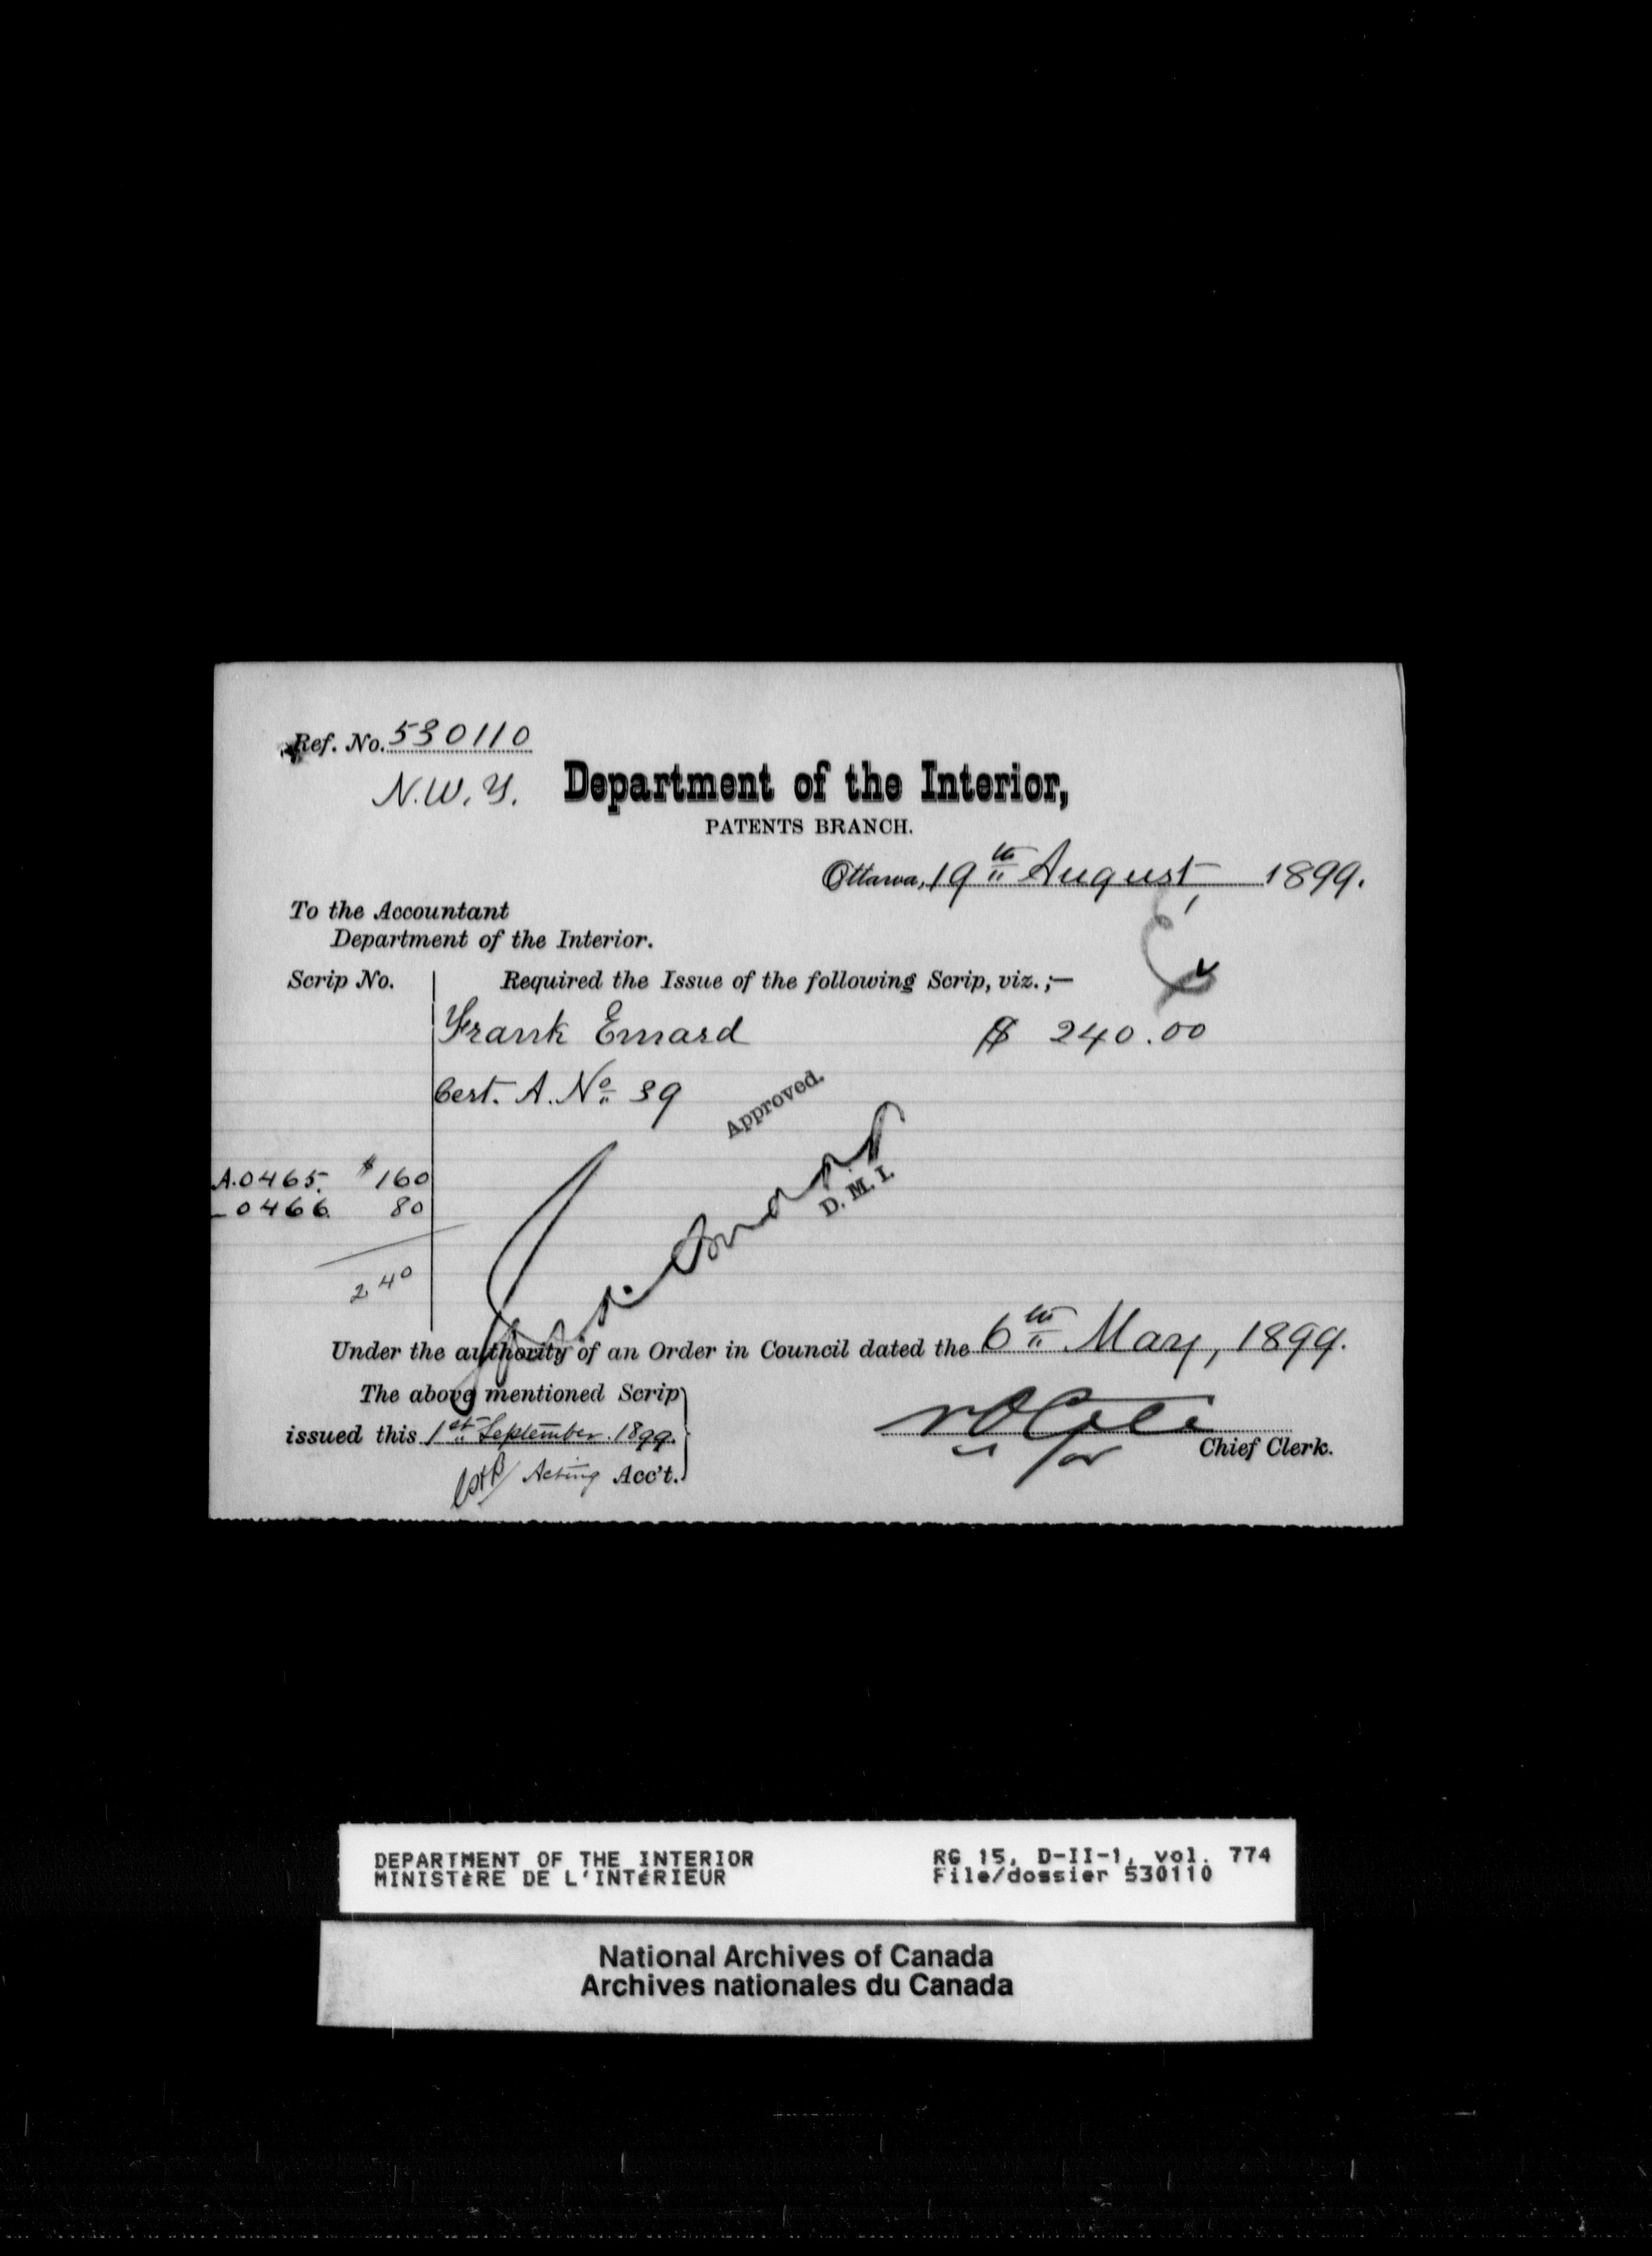 Ref. No. 530110
N.W.Y.
Department of the Interior,
PATENTS BRANCH.
Ottawa, 19th August, 1899.
To the Accountant
Department of the Interior.
Scrip No. Required the Issue of the following Scrip, viz.;—
Frank Emard $ 240.00
Cert. A. No. 39
Approved.
A.0465. $160
D. M. I.
0466. 80
240
Under the authority of an Order in Council dated the 6th May, 1899.
The above mentioned Scrip
issued this 1st September. 1899.
Chief Clerk.
Acting Acc't.
DEPARTMENT OF THE INTERIOR RG 15, D-II-1, vol. 774
MINISTÈRE DE L'INTÉRIEUR File/dossier 530110
National Archives of Canada
Archives nationales du Canada